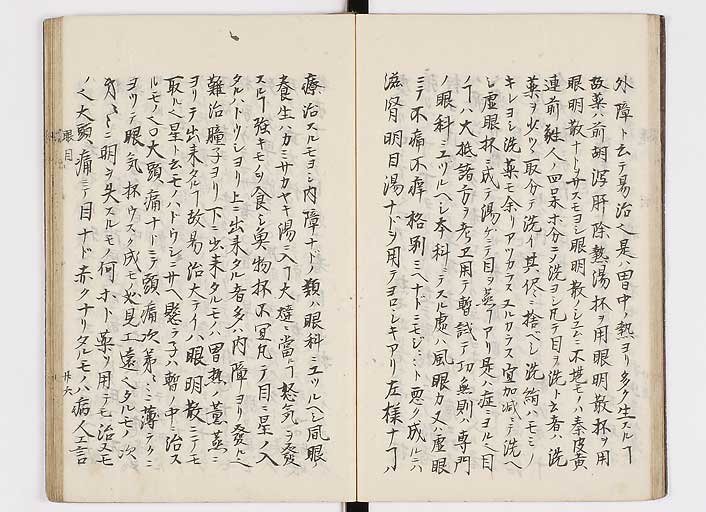 外障ト云テ易治ヘ是ハ胃中ノ熱ヨリ多ク生スルヿ
故薬ハ前胡瀉肝除熱湯杯ヲ用眼明散杯ヲ用
眼明散ナドヲサスモヨシ眼明散ノシエムニ不堪モハ秦皮黄
連前 人四品 分ニノ洗ヨシ凡テ目ヲ洗ト云者ハ洗
薬ヲ少ツヽ取分テ洗イ其侭ニ捨ベシ洗絹ハモミノ
キレヨシ洗薬モ余リアツカラスヌルカラス宜加减ニテ洗ヘ
シ虚眼杯ニ成テ湯ゲニテ目ヲ蒸ヿアリ是ハ症ニヨルベシ目
ノヿハ大抵諸方ヲ考ヱ用テ暫試テ功無則ハ専門
ノ眼科ニユツルヘシ本科ニテスル処ハ風眼カ又ハ虚眼
ニテ不痛不痒格別ミヘナドニモ ト 悪ク成ルニハ
滋腎明目湯ナドヲ用テヨロシキアリ左様ナヿハ
療治スルモヨシ内障ナドノ類ハ眼科ニユツルヘシ風眼
養生ハカミサカヤキ湯ニ入ヿ大 ニ當ルヿ怒気ヲ發
スルヿ強キモノヲ食シ魚物杯不宜凡テ目ニ星ノ入
タルハドウシヨリ上ニ出来タル者多ハ内障ヨリ發ルヘ
難治瞳子ヨリ下ニ出来タルモノハ胃熱ノ薫蒸ニ
ヨリテ出来タルヿ故易治大テイハ眼明散ニテモ
取ルヘシ星ト云モノハドウシニサヘ懸ラ子ハ暫ノ中ニ治ス
ルモノヘ○大頭痛ナドニテ頭痛次第ニ薄テクニ
ヨツテ眼気杯ウスク成モノ処見エ遠ヘタルモノ次
第ニ明ヲ失スルモノ何ホド薬ヲ用テモ治ヌモ
ノヘ大頭痛ニテ目ナド赤クナリタルモノハ病人エ言
眼目
廿六